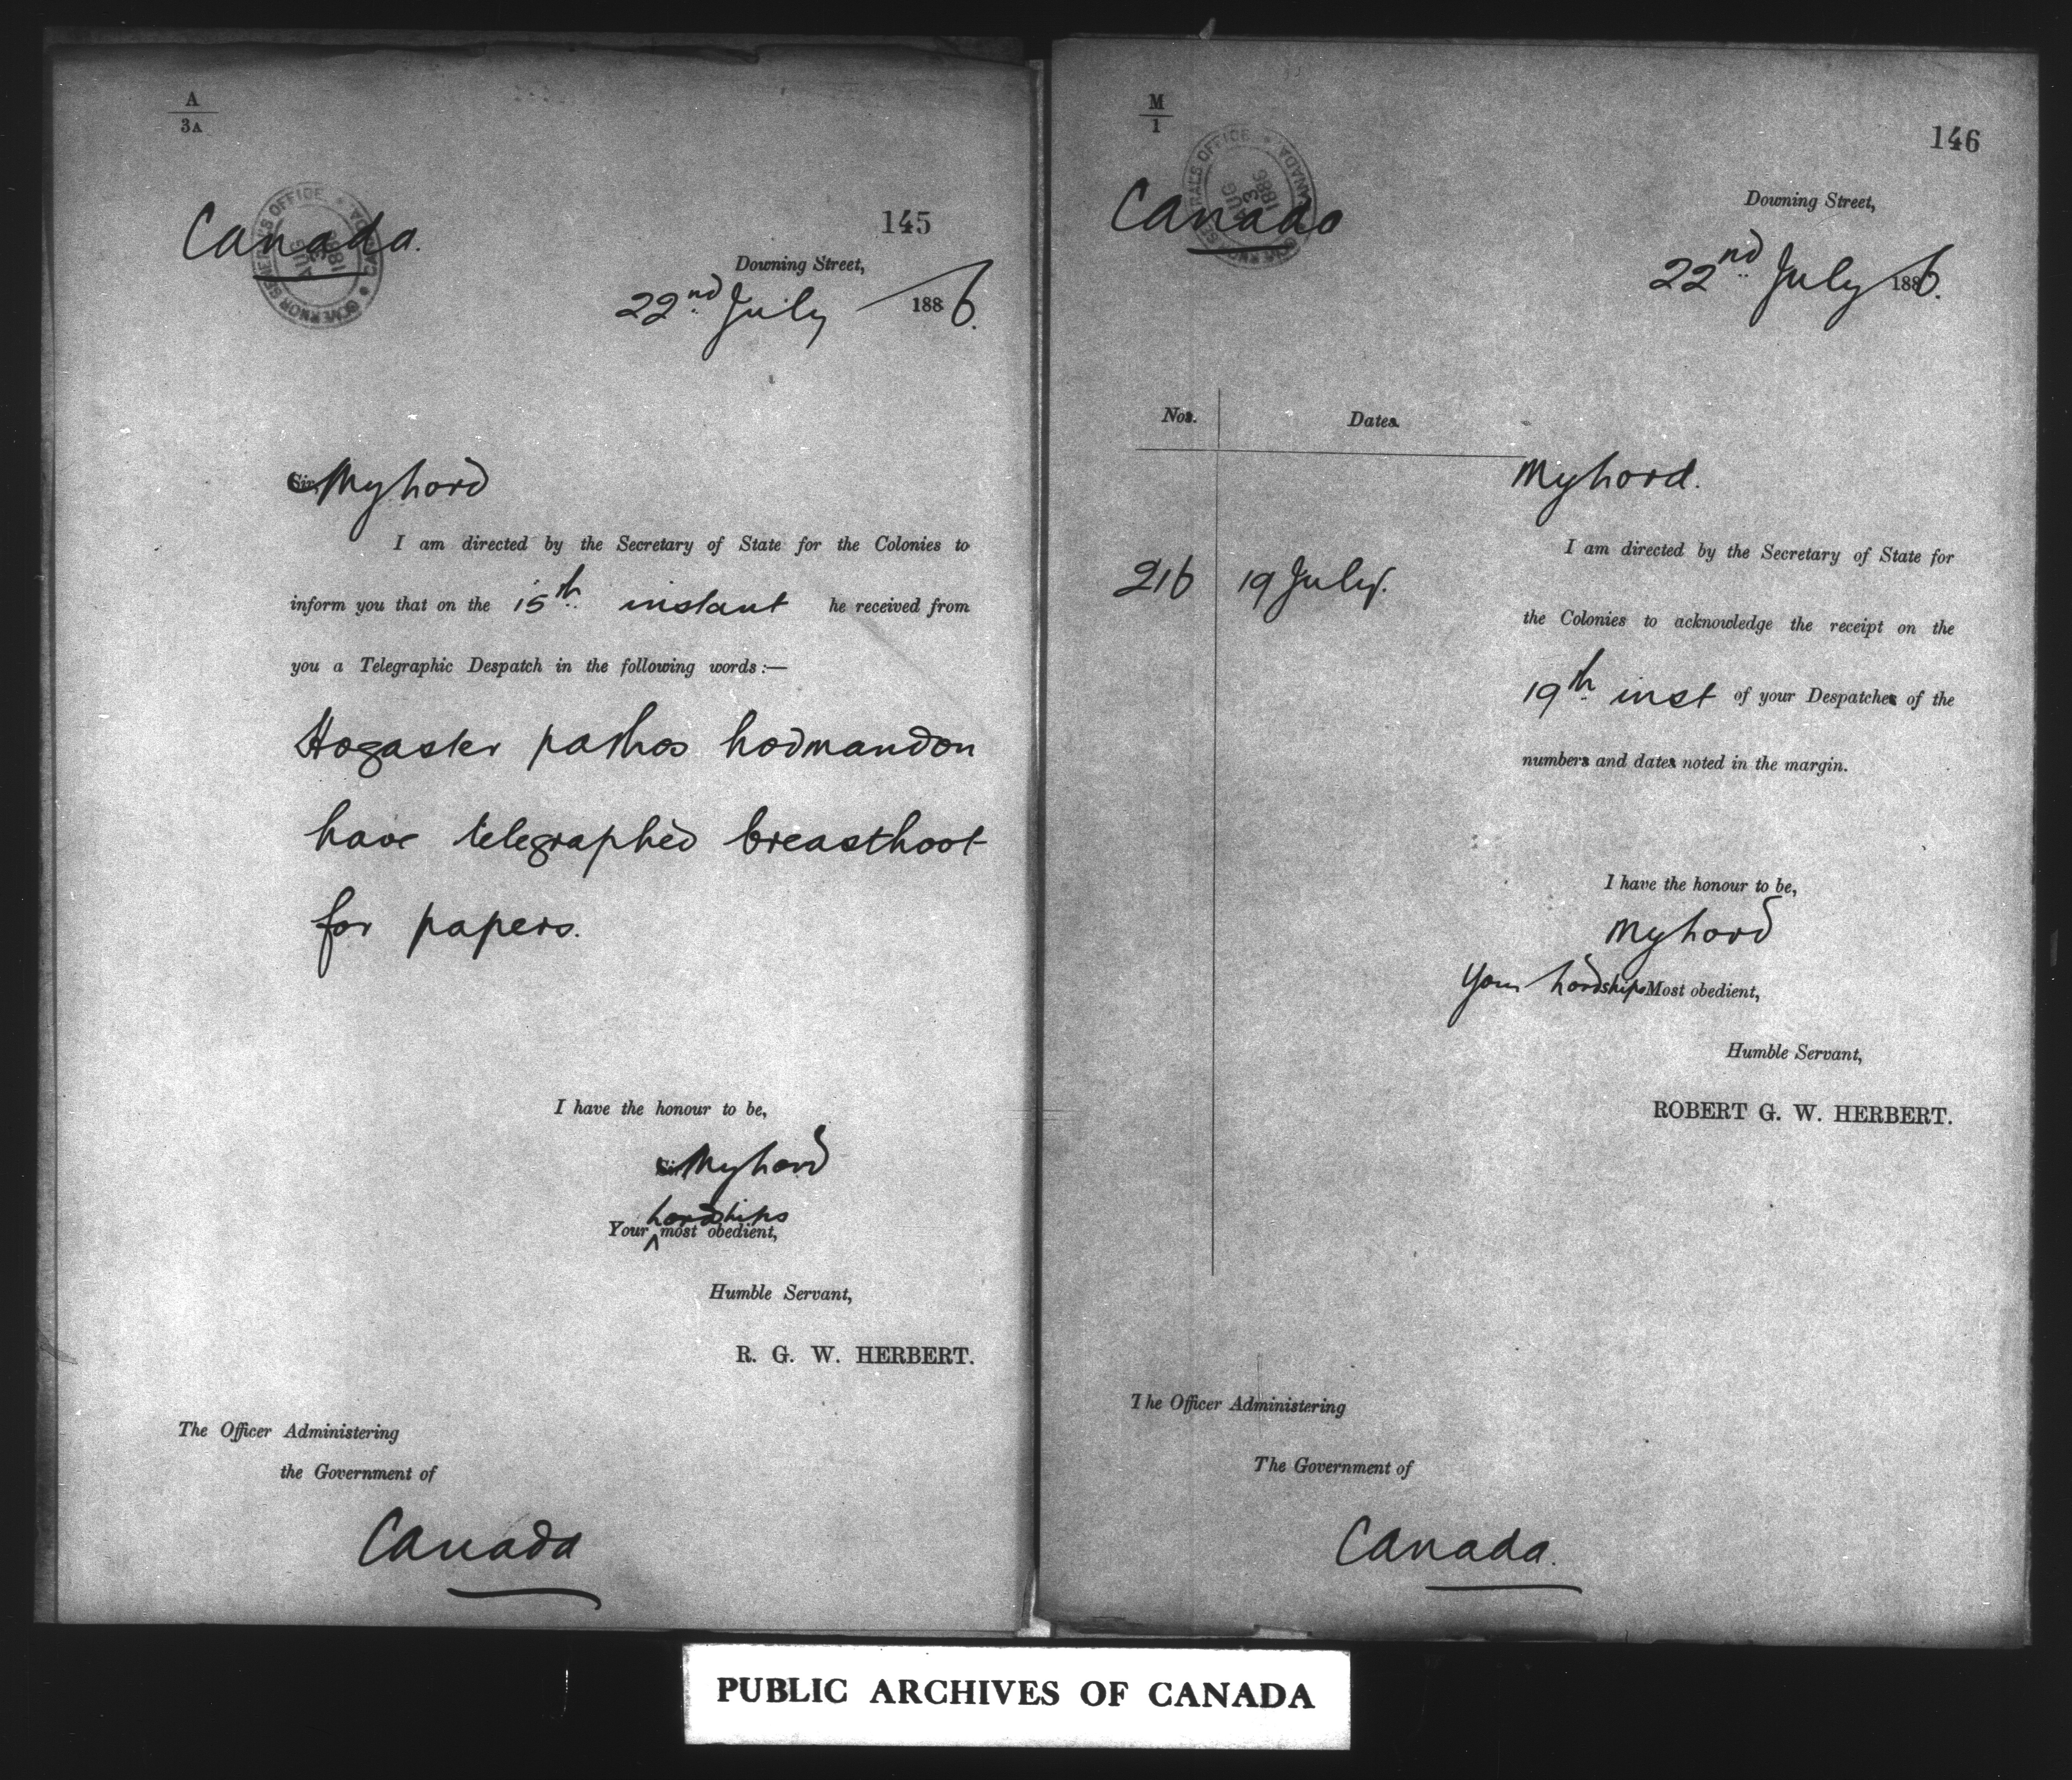 A
3A
GOVERNOR GENERAL'S OFFICE * CANADA *
AUG
3
1886
Canada.
145
Downing Street,
22nd July 1886.
Sir, My Lord
I am directed by the Secretary of State for the Colonies to
inform you that on the 15th instant he received from
you a Telegraphic Despatch in the following words:—
Hogaster pathos hodmandon
have telegraphed breasthoot
for papers.
I have the honour to be,
Sir, My Lord
Lordships
Your ^ most obedient,
Humble Servant,
R. G. W. HERBERT.
The Officer Administering
the Government of
Canada
M
1
GOVERNOR GENERAL'S OFFICE * CANADA *
AUG
3
1886
Canada
146
Downing Street,
22nd July 1886.
Nos. Dates.
My Lord.
I am directed by the Secretary of State for
216 19 July.
the Colonies to acknowledge the receipt on the
19th inst of your Despatches of the
numbers and dates noted in the margin.
I have the honour to be,
My Lord
Your Lordships Most obedient,
Humble Servant,
ROBERT G. W. HERBERT.
The Officer Administering
The Government of
Canada.
PUBLIC ARCHIVES OF CANADA